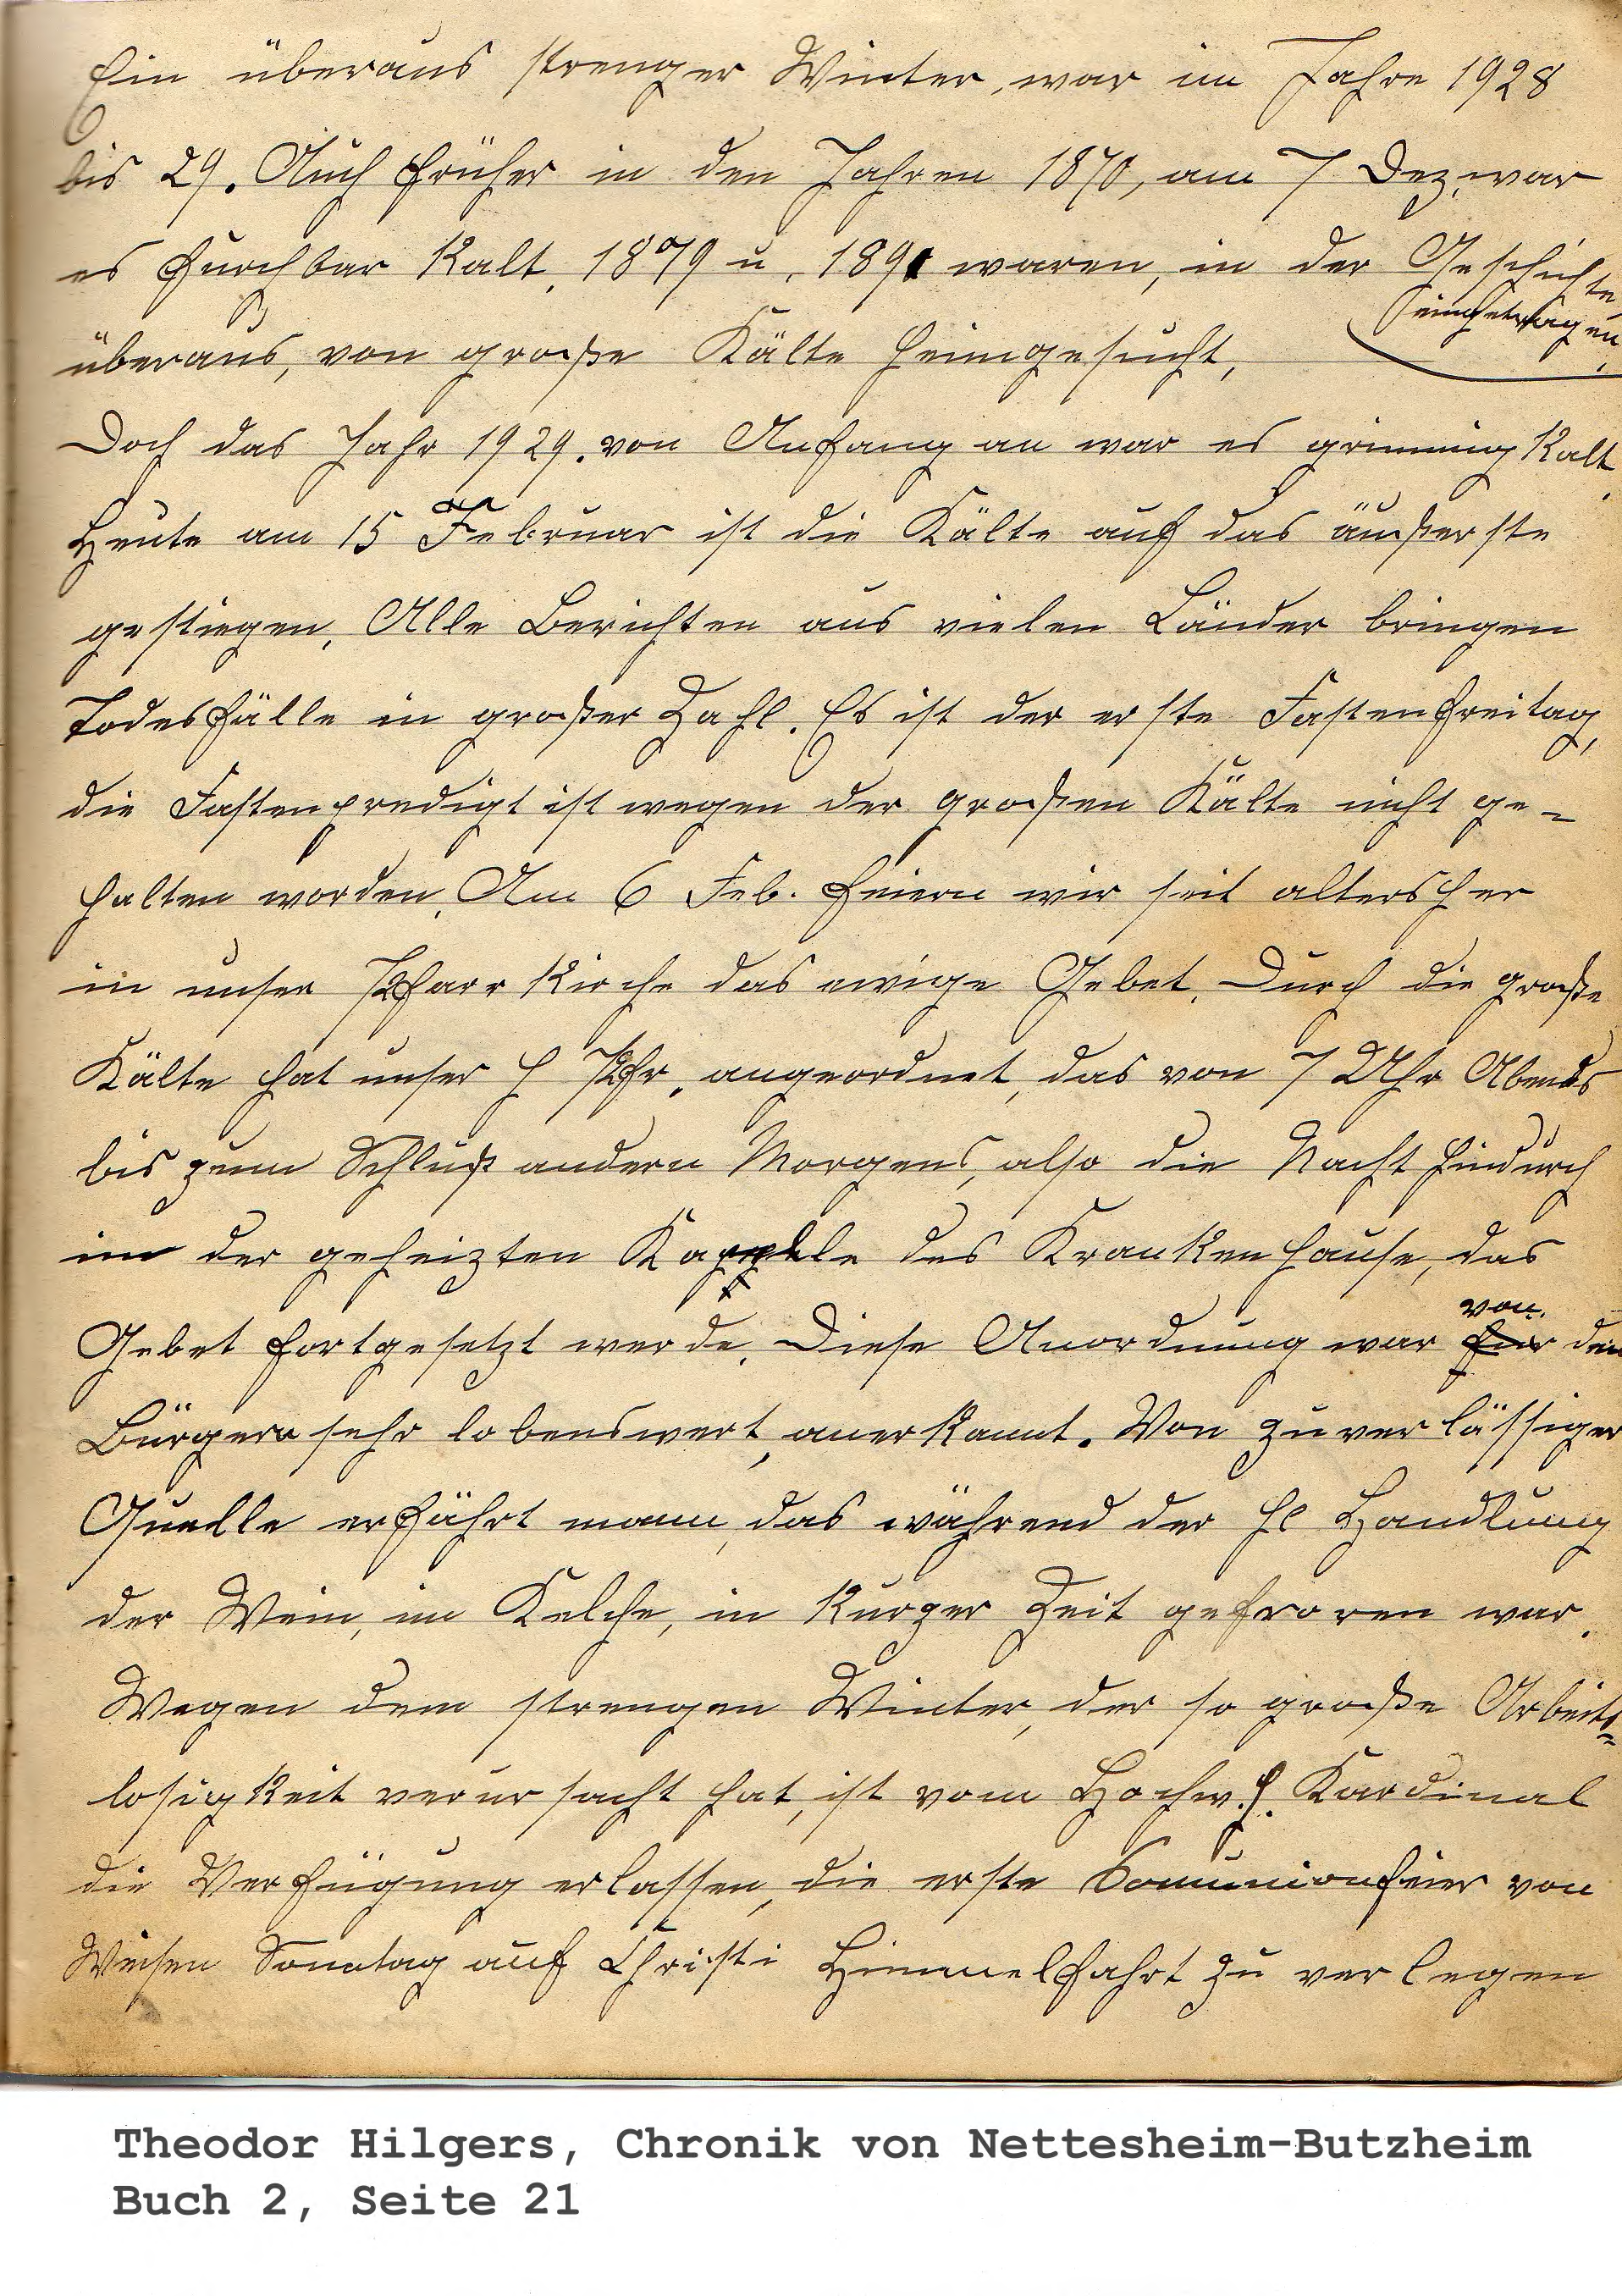 Ein überaus strenger Winter, war im Jahre 1928
bis 29. Auch früher in den Jahren 1870, am 7 Dez. war
es furchbar Kalt. 1879 u. 1891 waren, in der Geschichte
eingetragen,
überaus, von große Kälte heimgesucht,
Doch das Jahr 1929. von Anfang an war es grimmig Kalt.
Heute am 15 Februar ist die Kälte auf das äußerste
gestiegen. Alle Berichten aus vielen Länder bringen
Todesfälle in großer Zahl. Es ist der erste Fastenfreitag,
die Fastenpredigt ist wegen der großen Kälte nicht ge-
halten worden. Am 6 Feb. feiern wir seit altersher
in unser Pfarr Kirche das ewige Gebet. Durch die große
Kälte hat unser H Pfr. angeordnet, das von 7 Uhr Abends
bis zum Schluß andern Morgens, also die Nacht hindurch
in der geheizten Kappelle des Krankenhause, das
von
Gebet fortgesetzt werde. Diese Anordnung war für den
Bürgern sehr lobenswert, anerkannt. Von zuverlässiger
Quelle erfährt mann, das während der hl Handlung
der Wein, im Kelche, in Kurzer Zeit gefroren war.
Wegen dem strengen Winter, der so große Arbeits-
losigkeit verursacht hat, ist vom Hochw. H. Kardinal
die Verfügung erlassen, die erste Comunionfeier von
Weisen Sonntag auf Christi Himmelfahrt zu verlegen
Theodor Hilgers, Chronik von Nettesheim-Butzheim
Buch 2, Seite 21